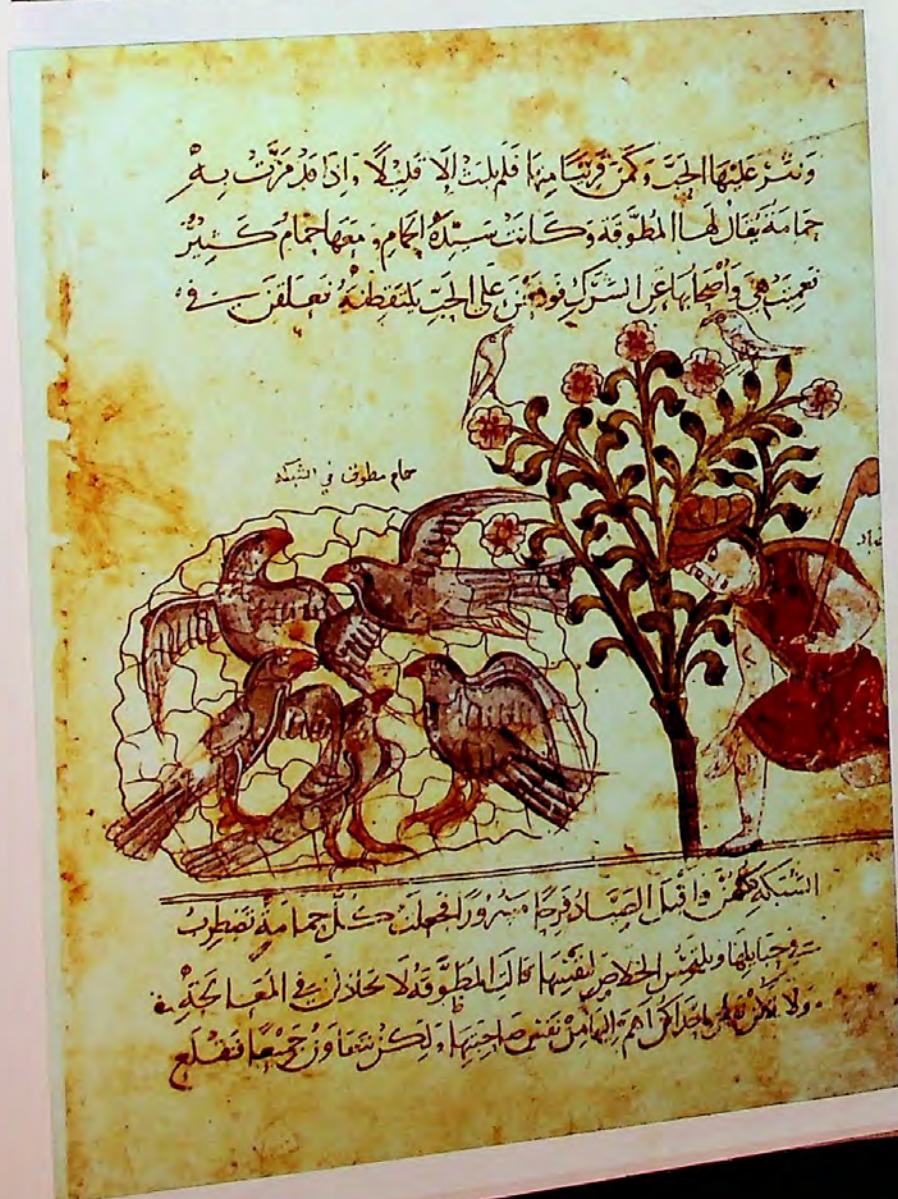 وَنثر عَليْهَا الحَبَّ وَكَمَنَ قريبًا مِنهَا فَلم يلبث إلّا قَليْلًا وَاِذَا قَدْ مَرَّتْ بِهِ
حَمَامَةٌ يُقَالُ لَهَا المُطَوَّقَة وَكَانَتْ سَيِّدَةُ الحَمَامِ وَمَعَهَا حَمَامٌ كَثِيْرٌ
فَعَمِيَتْ هِيَ وَأَصْحَابُهَا عَنِ الشَّرَكِ فَوَقَعْنَ عَلَى الحَبِّ يَلتَقِطنَهُ فَعَلِقْنَ في
حمام مطوق في الشبكه
الشَبَكَةِ كلّهُنَّ وَاقْبَلَ الصَيَّادُ فَرِحًا مَسْرُورًا فجَعَلتْ كُلُّ حَمَامَةٍ تَضْطَرِبُ
في حَبَايلِهَا وَتلتَمِسُ الخَلاصَ لِنفْسِهَا قَالت المُطَوَّقَةُ لا تخَاذلنَ في المُعَالجَةِ
وَلا تكن نفس احداكن اهمّ اليهَا مِنْ نَفسِ صَاحِبَتِهَا وَلكِنْ نَتَعَاوَنُ جَمِيْعًا فَنَقْلَع